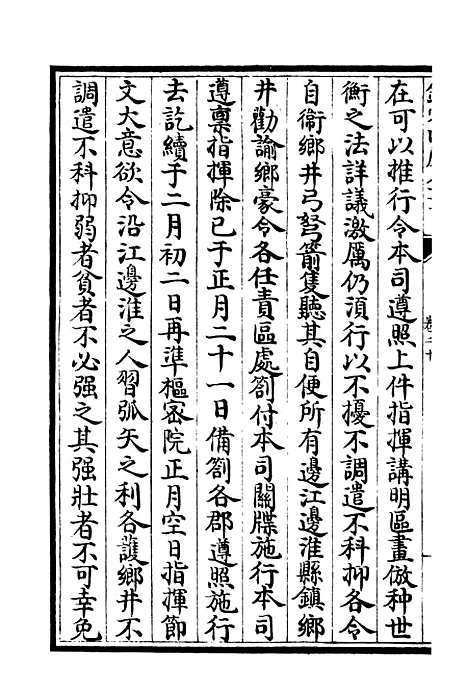 在可以推行令本司遵照上件指揮講明區畫倣种世
衡之法詳議激厲仍湏行以不擾不調遣不科抑各令
自衞鄉井弓弩箭隻聽其自便所有邊江邊淮縣鎮鄉
井勸諭鄉豪令各任責區處劄付本司關牒施行本司
遵禀指揮除已于正月二十一日備劄各郡遵照施行
去訖續于二月初二日再準樞宻院正月空日指揮節
文大意欲令沿江邊淮之人習弧矢之利各護鄉井不
調遣不科抑弱者貧者不必强之其强壯者不可幸免